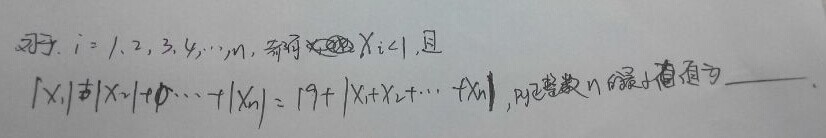 对于 i = 1、2、3、4,…,n, 都有 Xi<1, 且
|X₁|+|X₂|+…+|Xn| = 19+|X₁+X₂+…+Xn|, 则正整数n的最小值为____.